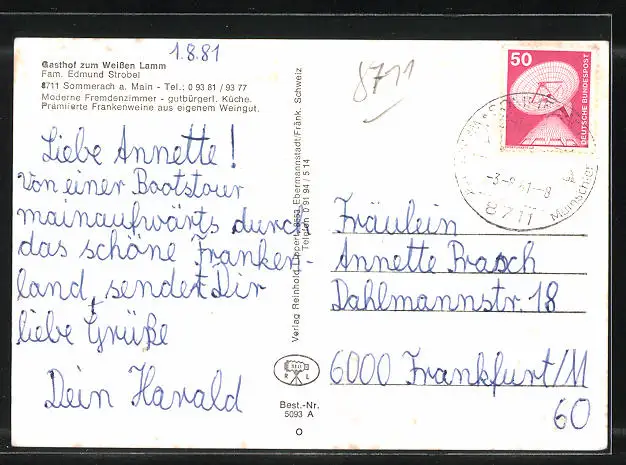 1.8.81
Gasthof zum Weißen Lamm
Fam. Edmund Strobel
8711 Sommerach a. Main - Tel.: 0 93 81 / 93 77
Moderne Fremdenzimmer - gutbürgerl. Küche.
Prämiierte Frankenweine aus eigenem Weingut.
Liebe Annette!
Von einer Bootstour
mainaufwärts durch
das schöne Franken-
land, sendet Dir
liebe Grüße
Dein Harald
Verlag Reinhold Lippert, 8553 Ebermannstadt/Fränk. Schweiz
Telefon 0 91 94 / 5 14
R L
Best.-Nr.
5093 A
8711
50
DEUTSCHE BUNDESPOST
8711
Mainschlei
Fräulein
Annette Prasch
Dahlmannstr. 18
6000 Frankfurt/M
60